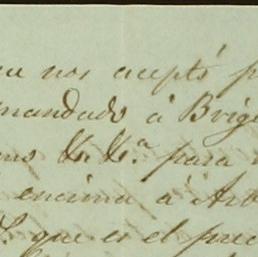 nos aceptó
mandado á Brig
para
encima á Arb
que es el prec